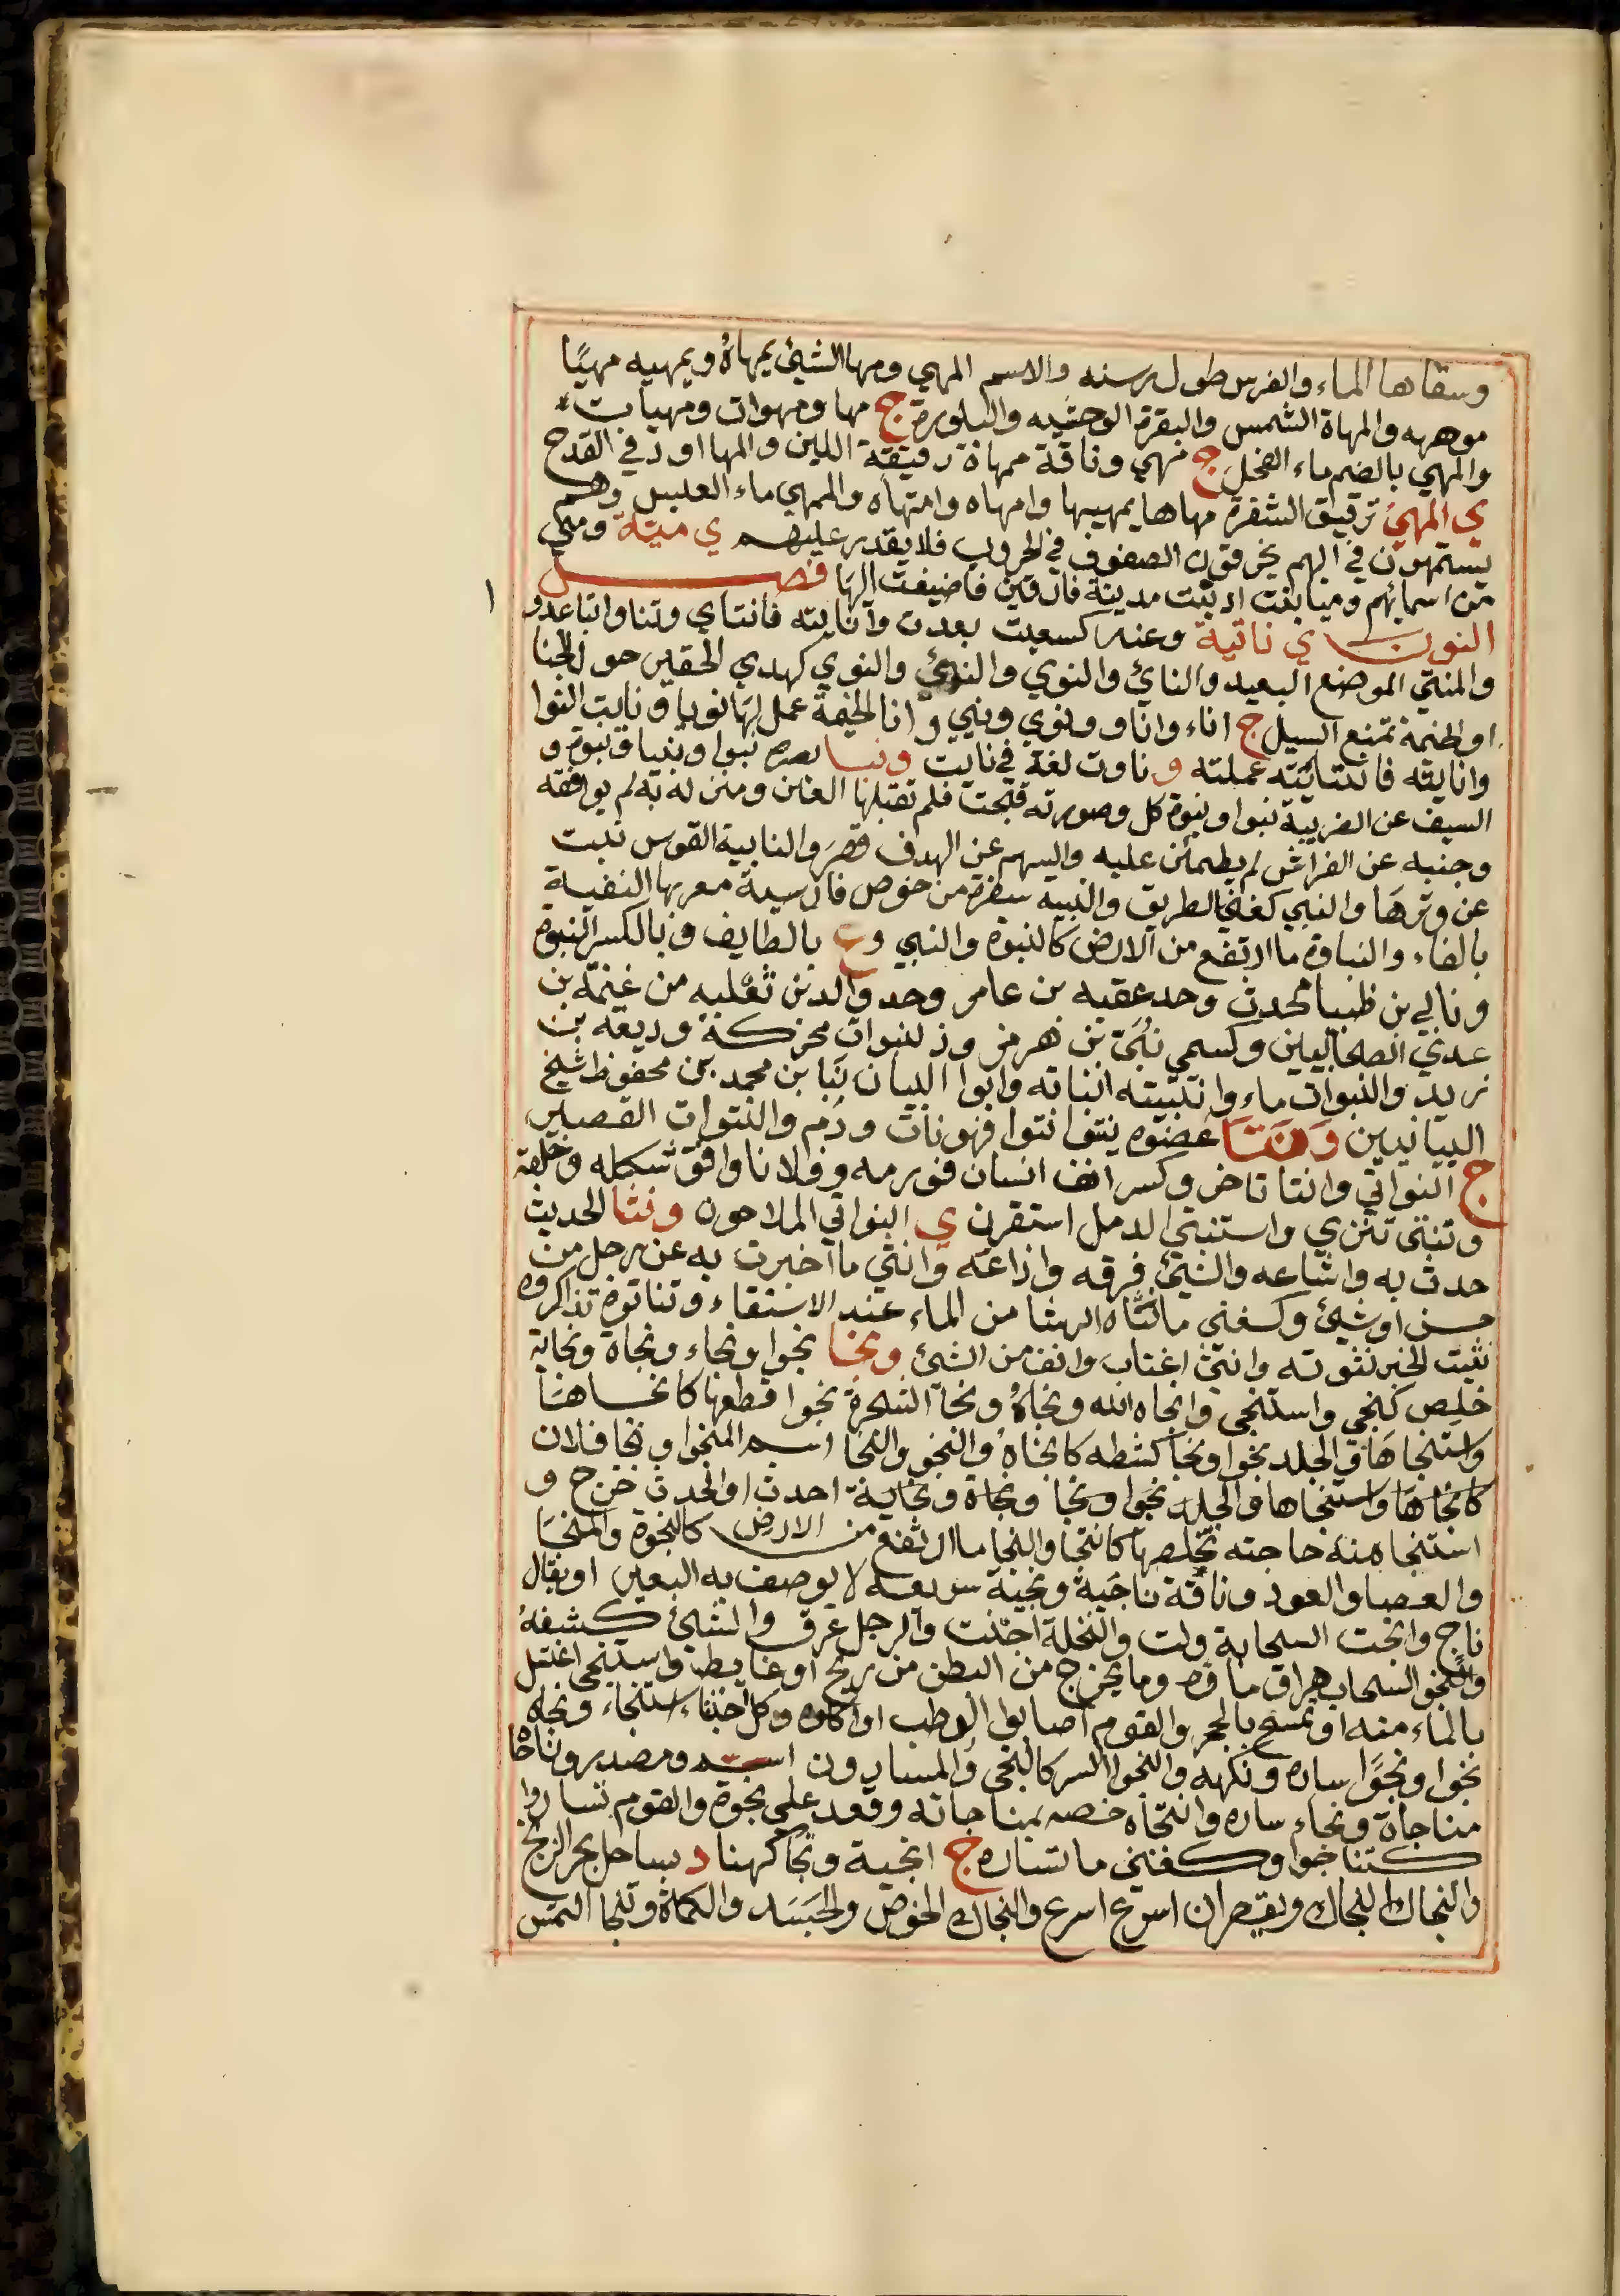 وسقاها الماء والفرس طول رسنه والاسم المهي ومها الشيئ يمهاهُ ويمهيه مهيًا
موهه والمهاة الشمس والبقرة الوحشيه والبلورة ج مها ومهوات ومهيات
والمهي بالضم ماء الفحل ج مهي وناقة ممهاة رقيقة اللبن والمها اود في القدح
ي المهي ترقيق الشفرة مهاها يمهيها وامهاه وامتهاه والمهي ماء العلبس وهم
يستمهون في البهم يخرقون الصفوف في الحروب فلا يقدر عليهم ي مية ومي
من اسمائهم وميا بنت اد بنت مدينة فارقين فاضيفت الها فصل
النون ي ناتية وعنه كسعيت بعدت وانايته فانتاي وتناوا تباعدو
والمنتي الموضع البعيد والنائ والنوي والنوئ والنوي كهدي الحفير حول الخبا
او الخيمة تمنع السيل ج اناء واناو ونوي ونيي وانا الخيمة عمل لها نويا ونايت النوا
وانايته فانتايته عملته و ناوت لغة في نايت ونبا بصره نبوا ونبيا ونبوة و
السيف عن الضريبة نبوا ونبوة كل وصورته قبحت فلم تقبلها العين ومنزله به لم يوافقه
وجنبه عن الفراش لم يطمئن عليه والسهم عن الهدف قصر والنابية القوس نبت
عن وترها والنبي كغني الطريق والنبية سفرة من خوص فارسية معربها النفية
بالفاء والنباوة ما ارتفع من الارض كالنبوة والنبي وع بالطايف وبالكسر النبوة
ونابي بن ظبيا محدث وجد عقبه بن عامر وجد والد بن ثعلبه من غنمة بن
عدي الصحابيين وكسمي نبي بن هرمز وذ لنبوان محركة وديعه بن
زيد والنبوان ماء وانتبيته انباته وابوا البيان نبا بن محمد بن محفوظ شيخ
البيانيين ونتا عضوه ينتوا نتوا فهو نات ورم والنتوات القصير
ج النواتي وانتا تاخر وكسر انف انسان فورمه وفلانا وافق شكله وخلقه
وتنتى تنزي واستنتي الدمل استقرن ي النواتي الملاحون ونثا الحديث
حدث به واشاعه والشيئ فرقه واذاعه وانثي ما اخبرت به عن رجل من
حسن او شيئ وكغني ما نثاه الرشا من الماء عند الاستقاء وتناثوه تذاكروه
نثيت الخبر نثوته وانثى اغتاب وانف من الشئ ونجا نجوا ونجاء ونجاة ونجاية
خلص كنجي واستنجى وانجاه الله ونجاهُ ونجا الشجرة نجوا قطعها كانجاها
واستنجاها والجلد نجوا ونجا كشطه كانجاهُ والنجو والنجا اسم المنجوا ونجا فلان
كانجاها واستنجاها والجلد نجوا ونجا ونجاة ونجاية احدث او الحدث خرج و
استنجاه منه حاجته تخلصها كانتجا والنجا ما ارتفع من الارض كالنجوة والمنجا
والعصا والعود وناقة ناجية ونجية سريعه لا يوصف به البعير او يقال
ناج وانجت السحابة ولت والنخلة اجنت والرجل عرق والشئ كشفهُ
والنجو السحاب هراق ماؤه وما يخرج من البطن من ريح او غايط واستنجى اغتسل
بالماء منه او تمسح بالحجر والقوم اصابوا الرطب او اكلوه وكل اجتناء استنجاء ونجاه
نجوا ونجوا ساره ونكهه والنجوا السر كالنجي والمسارون اسم ومصدر وناجاه
مناجاة ونجاء ساره وانتجاه خصه بمناجاته وقعد على نجوة والقوم تساروا
كتناجوا وكغني ما تساره ج انجية ونجا كهنا د بساحل بحر الزنج
والنجاك النجاك ويقصران اسرع اسرع والنجاك الحوض والحسد والكماة وتنجا التمس